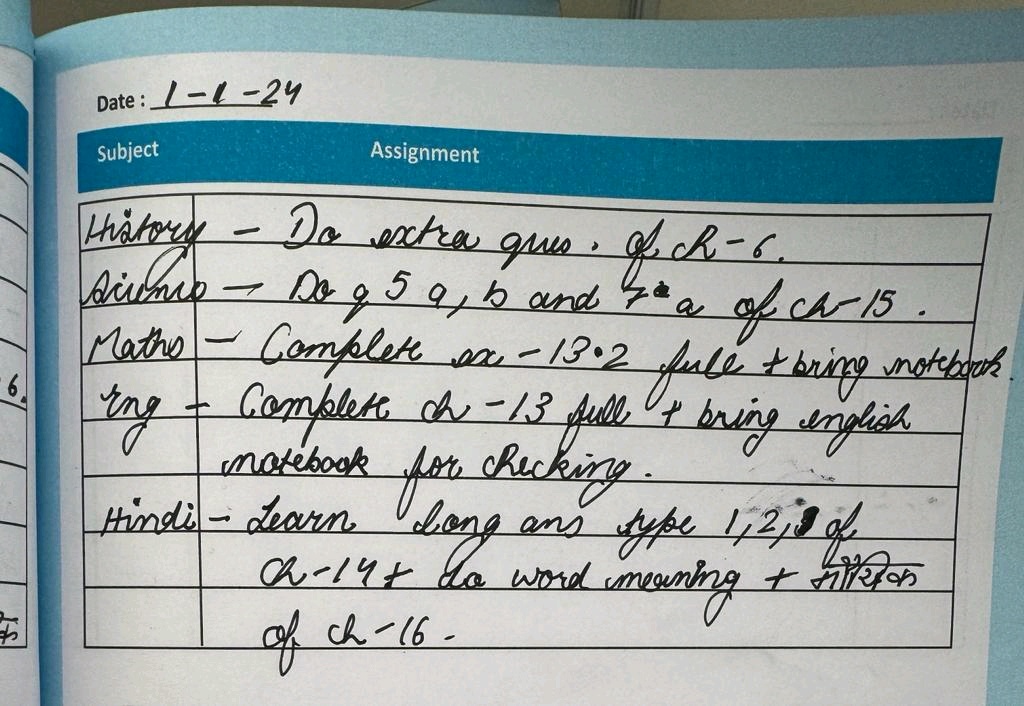 Date : 1-1-24
Subject Assignment
History - Do extra ques. of ch-6.
Science - Do q 5 a, b and 7 a of ch-15.
Maths - Complete ex-13.2 full + bring notebook.
6.
Eng - Complete ch-13 full + bring english
notebook for checking.
Hindi - Learn long ans type 1, 2, of
ch-14 + do word meaning +
of ch-16.